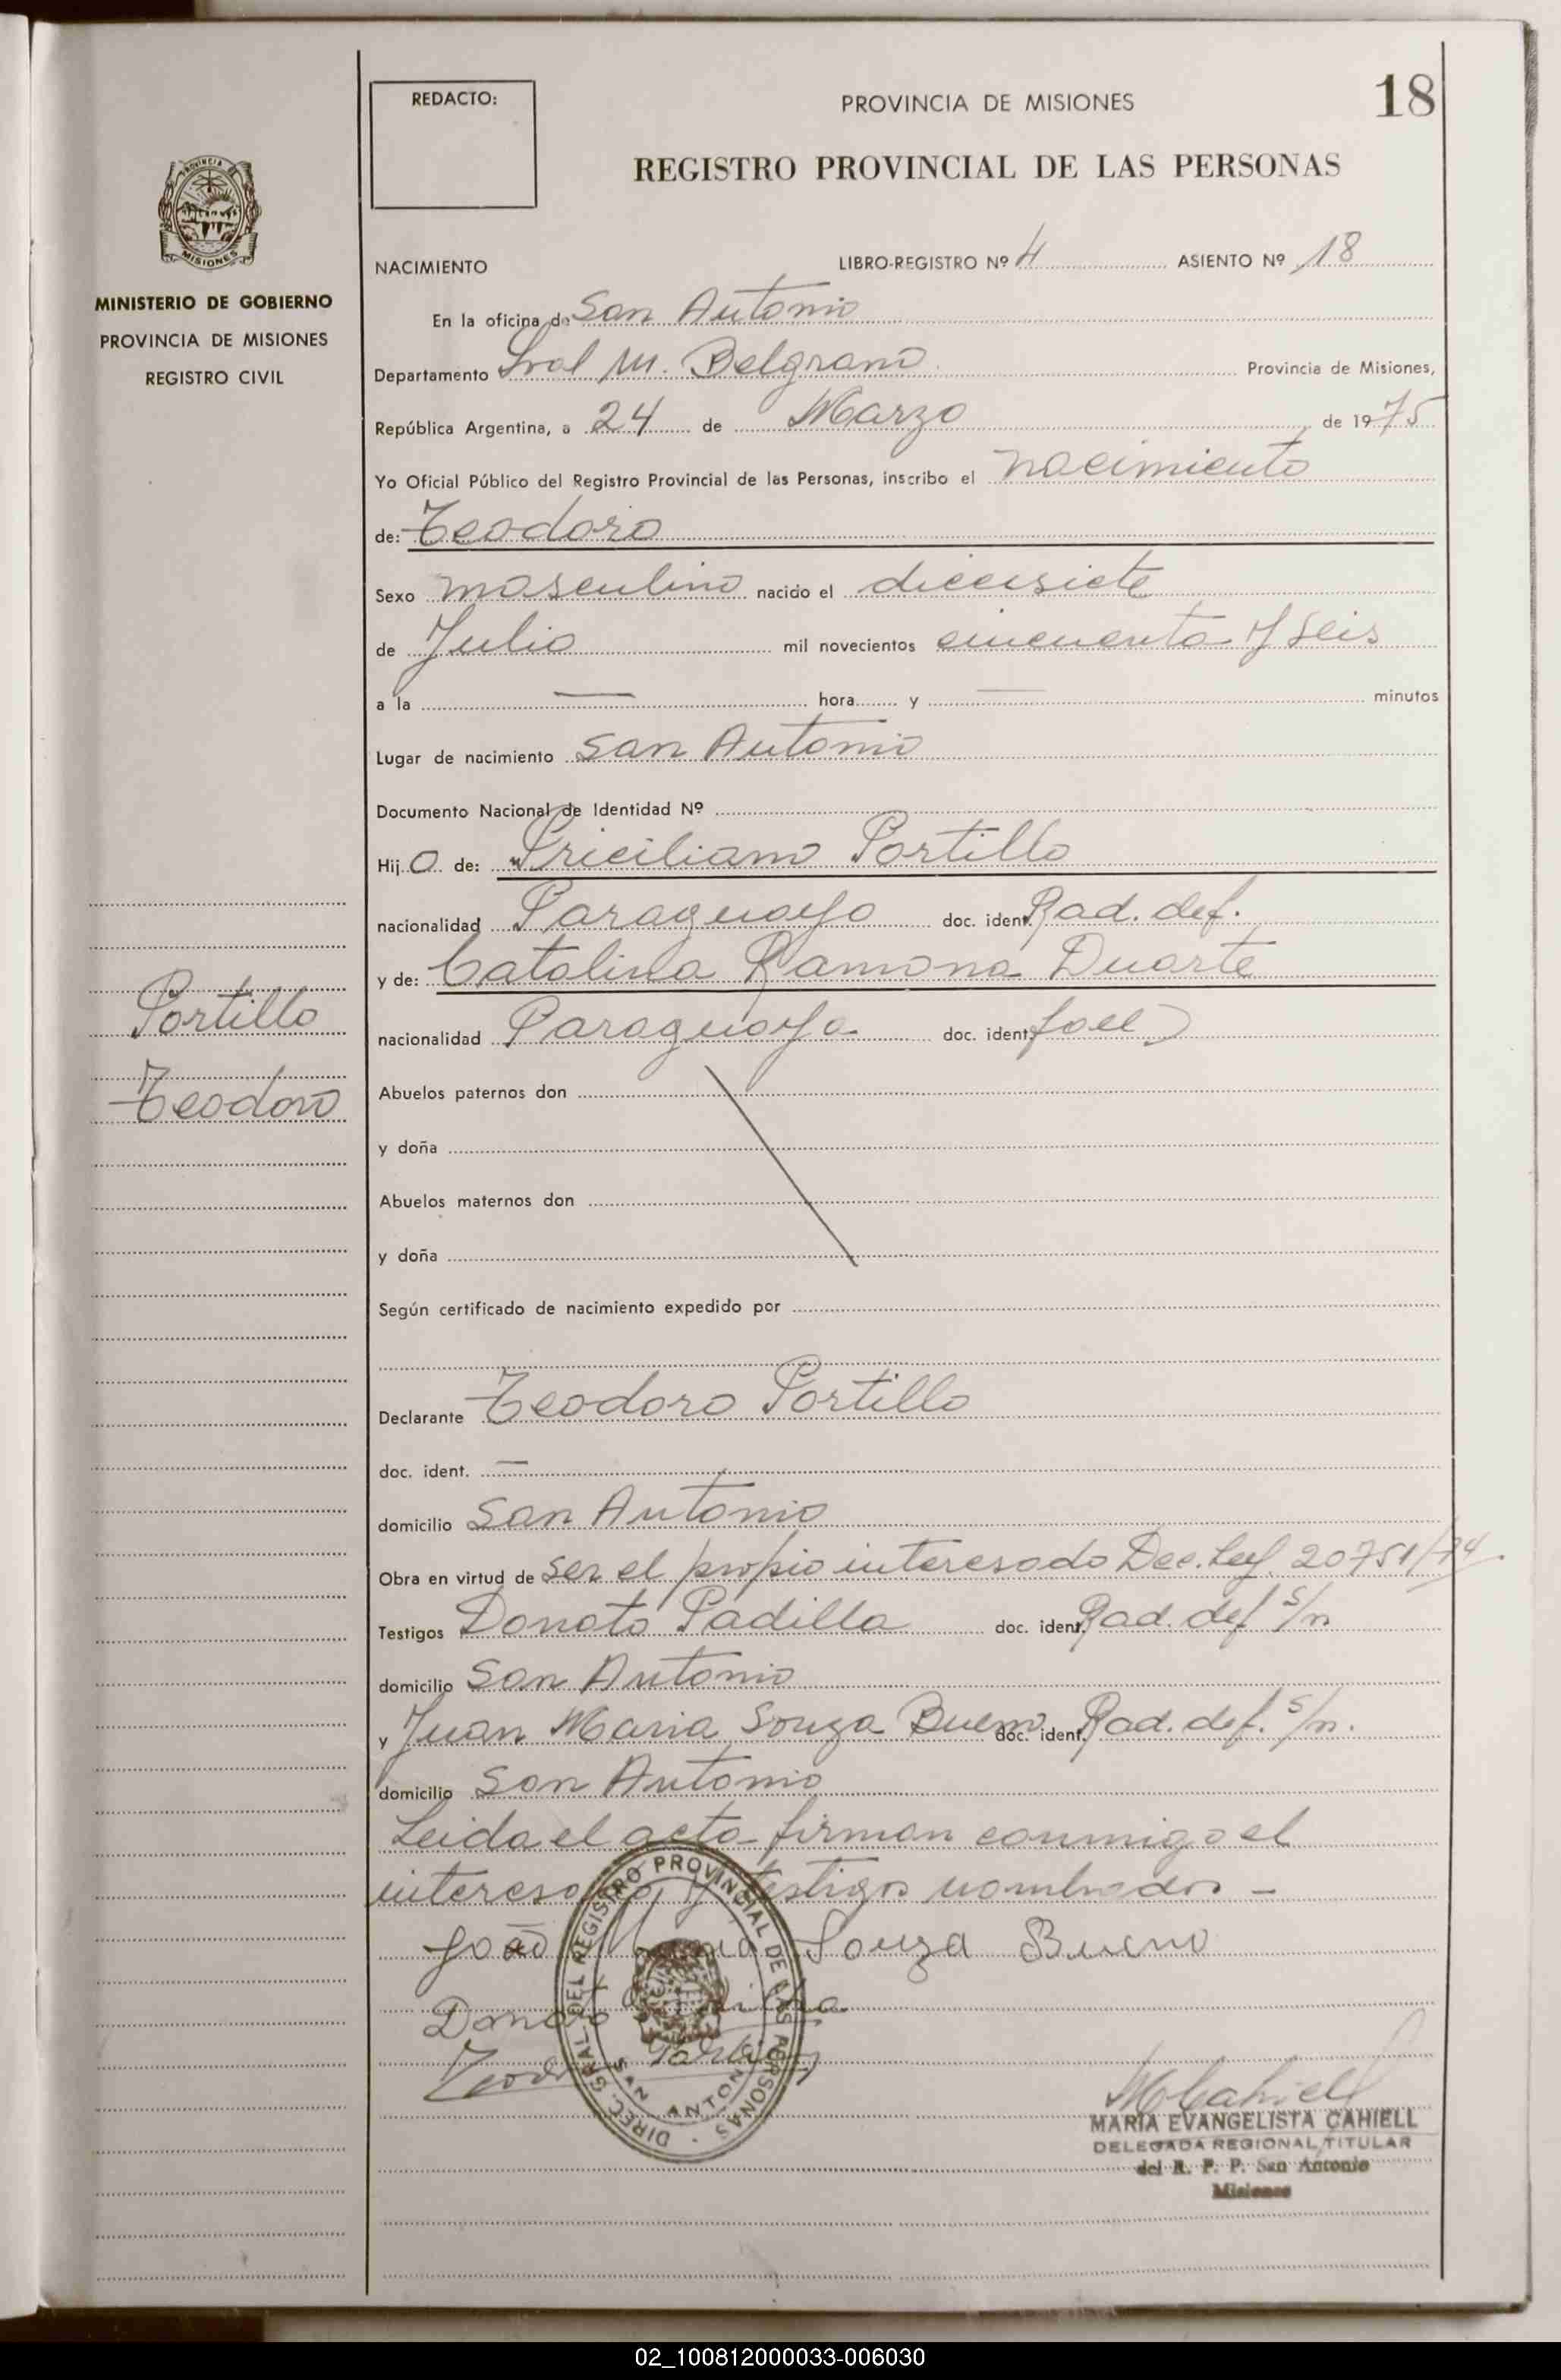 18
REDACTO:
PROVINCIA DE MISIONES
REGISTRO PROVINCIAL DE LAS PERSONAS
PROVINCIA
MISIONES
MINISTERIO DE GOBIERNO
PROVINCIA DE MISIONES
REGISTRO CIVIL
NACIMIENTO LIBRO-REGISTRO Nº 4 ASIENTO Nº 18
En la oficina de San Antonio
Departamento Gral M. Belgrano Provincia de Misiones,
República Argentina, a 24 de Marzo de 1975
Yo Oficial Público del Registro Provincial de las Personas, inscribo el nacimiento
de: Teodoro
Sexo masculino nacido el diecisiete
de Julio mil novecientos cincuenta y seis
a la — hora y — minutos
Lugar de nacimiento San Antonio
Documento Nacional de Identidad Nº
Hijo de: Priciliano Portillo
nacionalidad Paraguayo doc. ident. Rad. def.
y de: Catalina Ramona Duarte
nacionalidad Paraguaya doc. ident.
Portillo
Teodoro
Abuelos paternos don
y doña
Abuelos maternos don
y doña
Según certificado de nacimiento expedido por
Declarante Teodoro Portillo
doc. ident. —
domicilio San Antonio
Obra en virtud de ser el propio interesado Dec. Ley. 20751/74.
Testigos Donato Padilla doc. ident. Rad. def s/n
domicilio San Antonio
y Juan Maria Souza Bueno doc. ident. Rad. def. s/n.
domicilio San Antonio
Leida el acta firman conmigo el
interesado y testigos nombrados -
João Maria Souza Bueno
Donato Padilha
DIREC. GRAL. DEL REGISTRO PROVINCIAL DE LAS PERSONAS
SAN ANTONIO
MCahiell
MARIA EVANGELISTA CAHIELL
DELEGADA REGIONAL TITULAR
del R. P. P. San Antonio
Misiones
02_100812000033-006030